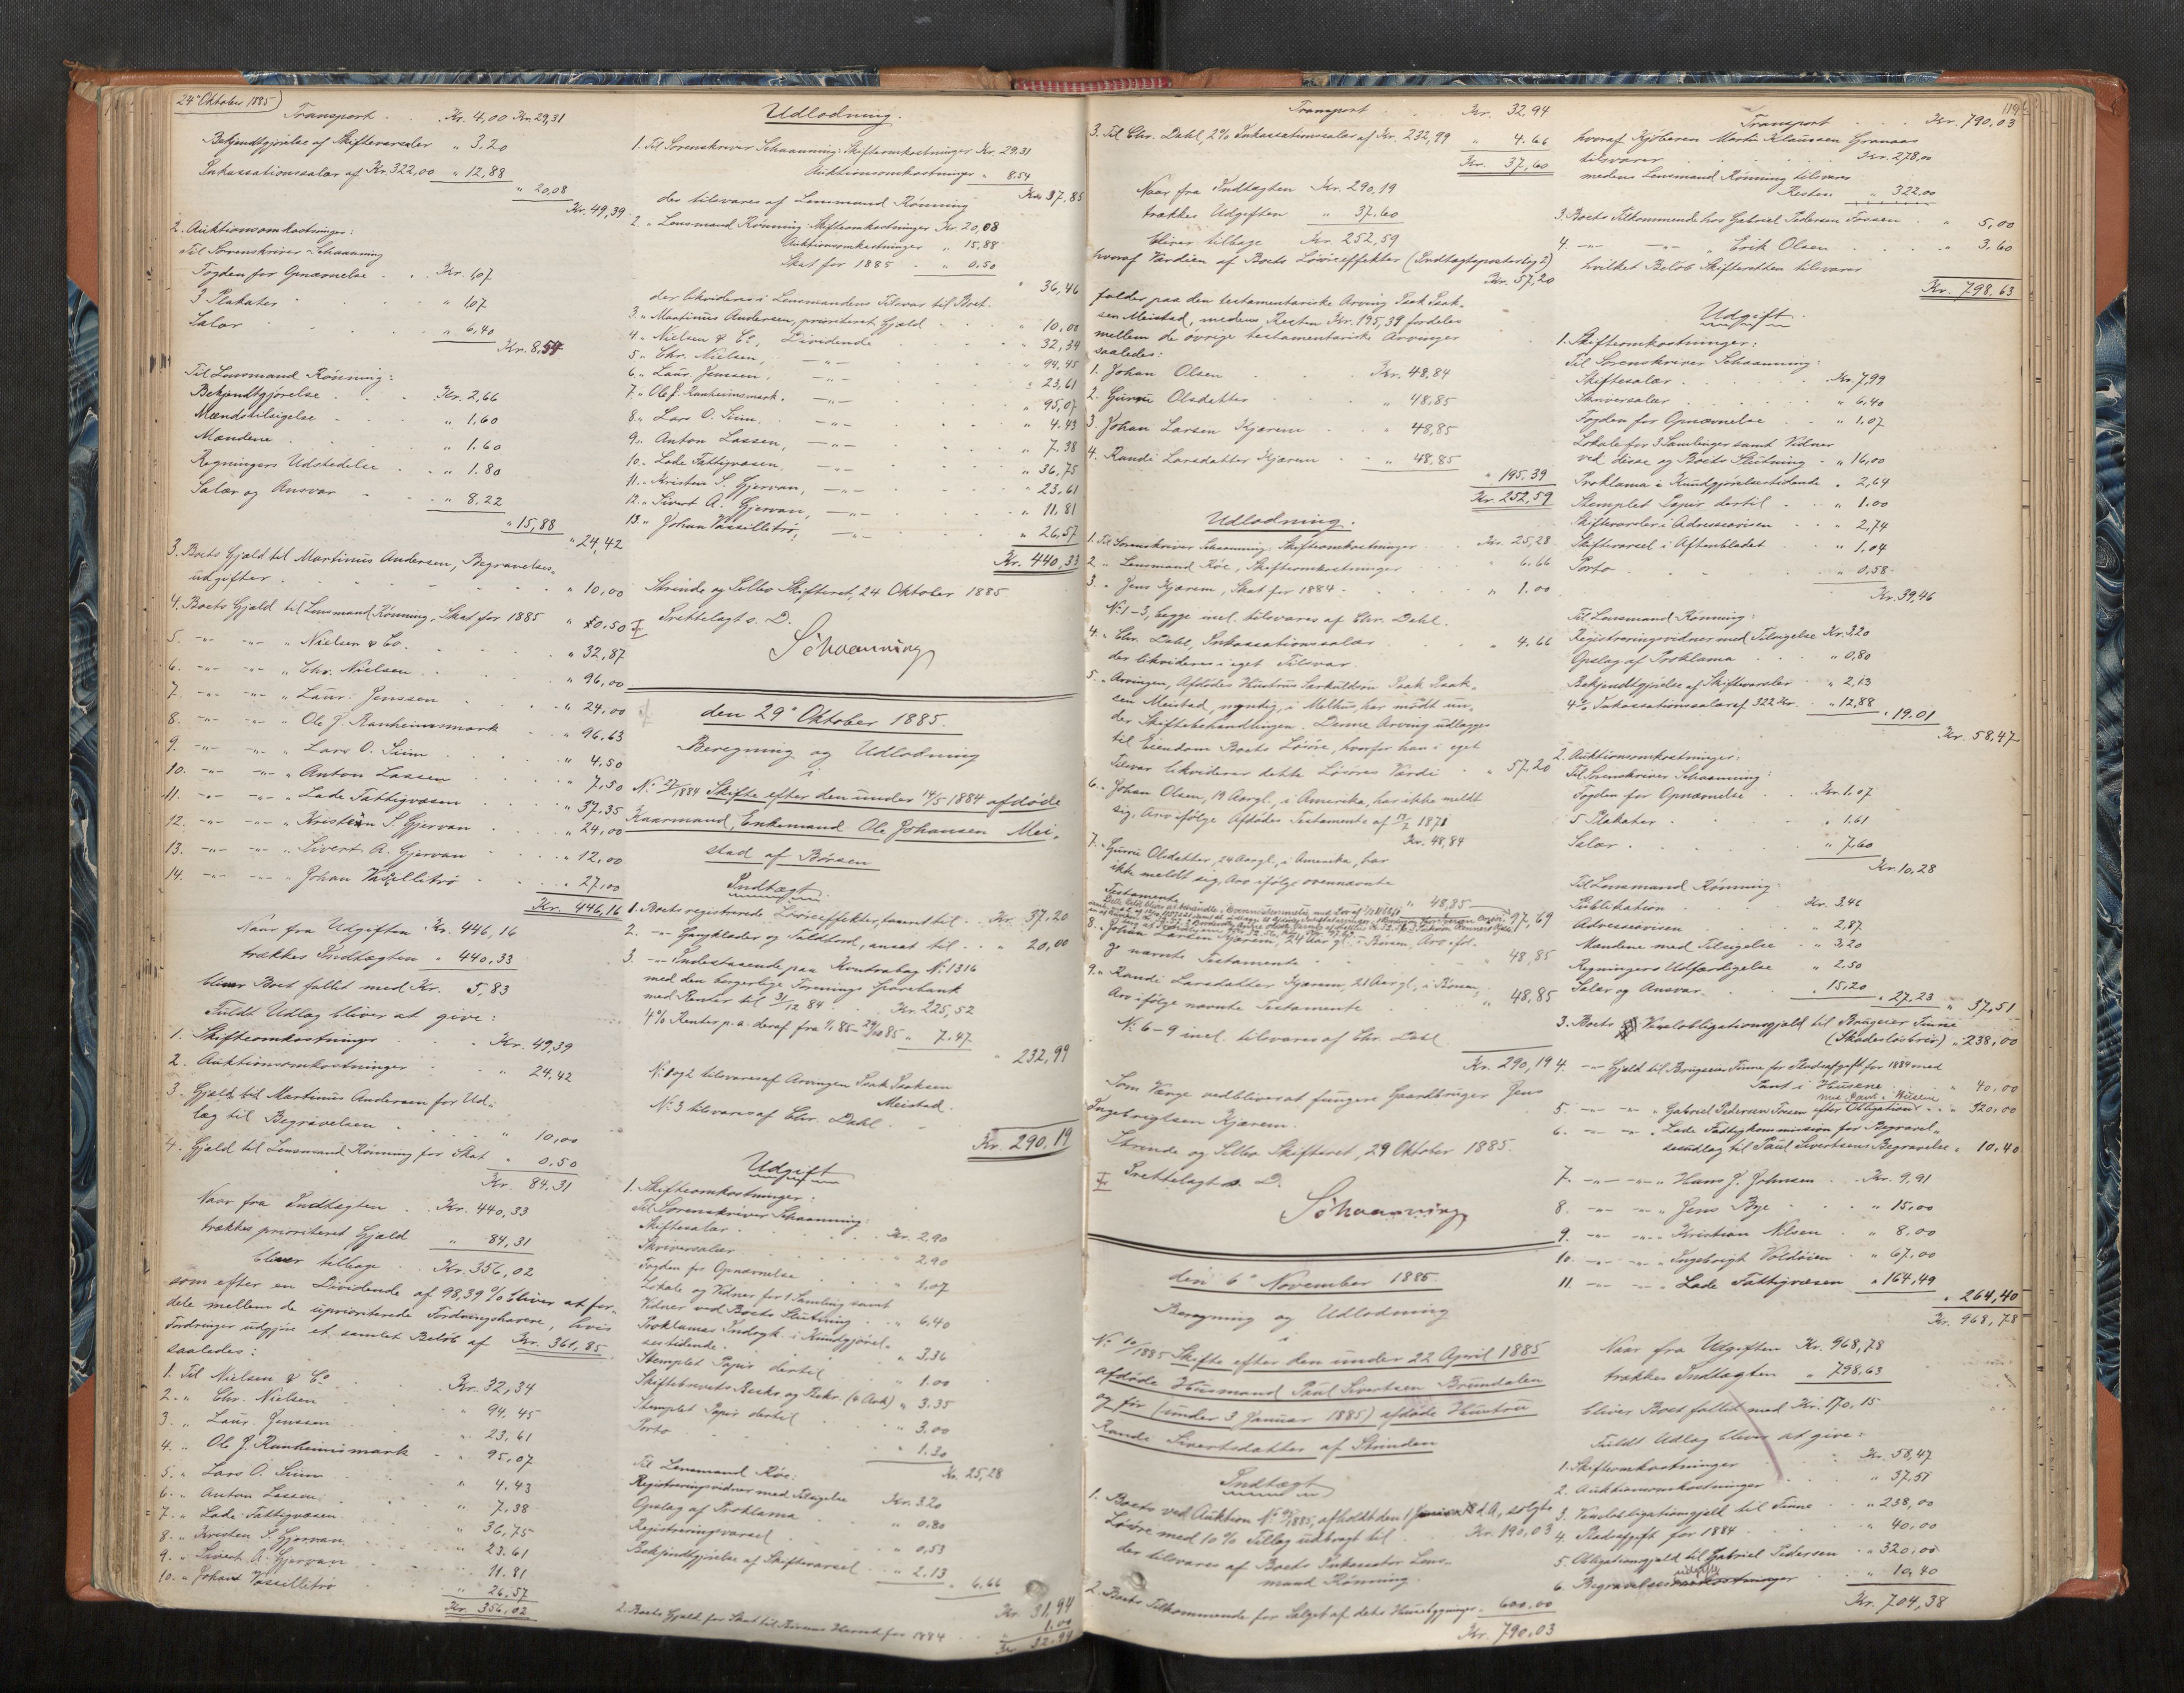 24de Oktober 1885
Transport . . Kr. 4,00 Kr. 29,31
Bekjendtgjørelse af Skiftevarsler " 3.20
Inkassationssalær af Kr. 322,00 " 12,88
" 20,08
Kr. 49,39
2. Auktionsomkostninger:
Til Sorenskriver Schaanning
Fogden for Opnævnelse . . Kr. 1,07
3 Plakater " 1,07
Salær " 6,40
Kr. 8,54
Til Lensmand Rønning:
Bekjendtgjørelse . Kr. 2,66
Mændstilsigelse " 1,60
Mændene " 1.60
Regningers Udstedelse " 1.80
Salær og Ansvar " 8,22
" 15,88
" 24,42
3. Boets Gjæld til Martinus Andersen, Begravelses-
udgifter " 10,00
4. Boets Gjæld til Lensmand Rønning, Skat for 1885 " 0,50
5. -"- -"- " Nielsen & Co. " 32,87
6. -"- -"- " Chr. Nielsen " 96,00
7. -"- -"- " Laur. Jenssen " 24,00
8. -"- -"- " Ole J. Ranheimsmark " 96,63
9. -"- -"- " Lars O. Siim " 4,50
10. -"- -"- " Anton Lassen " 7,50
11. -"- -"- " Lade Fattigvæsen " 37,35
12. -"- -"- " Kristen S. Gjervan " 24,00
13. -"- -"- " Sivert A. Gjervan " 12,00
14. -"- -"- " Johan Vasillitrø " 27,00
Kr. 446,16
Naar fra Udgiften Kr. 446,16
trækkes Indtægten " 440,33
bliver Boet fallit med Kr. 5,83
Fuldt Udlæg bliver at give:
1. Skifteomkostninger Kr. 49,39
2. Auktionsomkostninger " 24,42
3. Gjæld til Martinus Andersen for Ud-
læg til Begravelsen " 10,00
4. Gjæld til Lensmand Rønning for Skat " 0,50
Kr. 84,31
Naar fra Indtægten . Kr. 440,33
trækkes prioriteret Gjæld " 84,31
bliver tilbage . Kr. 356,02
som efter en Dividende af 98,39 % bliver at for-
dele mellem de uprioriterede Fordringshavere, hvis
Fordringer udgjøre et samlet Beløb af Kr. 361,85
saaledes:
1. Til Nielsen & Co. Kr. 32,34
2. " Chr. Nielsen " 94,45
3. " Laur. Jenssen " 23,61
4. " Ole J. Ranheimsmark " 95,07
5. " Lars O. Siim " 4,43
6. " Anton Lassen " 7,38
7. " Lade Fattigvæsen " 36,75
8. " Kristen S. Gjervan " 23.61
9. " Sivert A. Gjervan " 11.81
10. " Johan Vassillitrø " 26,57
Kr. 356,02
Udlodning.
1. Til Sorenskriver Schaanning: Skifteomkostninger Kr. 29.31
Auktionsomkostninger " 8.54
Kr. 37,85
der tilsvares af Lensmand Rønning
2. " Lensmand Rønning: Skifteomkostninger Kr. 20,08
Auktionsomkostninger " 15,88
Skat for 1885 " 0,50
" 36,46
der likvideres i Lensmandens Tilsvar til Boet.
3. " Martinus Andersen, prioriteret Gjæld " 10,00
4. " Nielsen & Co., Dividende " 32,34
5. " Chr. Nielsen, -"- " 94,45
6. " Laur. Jenssen, -"- " 23,61
7. " Ole J. Ranheimsmark. -"- " 95,07
8. " Lars O. Siim. -"- " 4.43
9. " Anton Lassen, -"- " 7,38
10. " Lade Fattigvæsen, -"- " 36,75
11. " Kristen S. Gjervan, -"- " 23,61
12. " Sivert A. Gjervan, -"- " 11,81
13. " Johan Vassillitrø, -"- " 26,57
Kr. 440,33
Strinde og Selbo Skifteret, 24 Oktober 1885
Fremlagt s. D.
Schaanning
den 29de Oktober 1885.
Beregning og Udlodning
i
No. 17/1884 Skifte efter den under 14/5 1884 afdøde
Kaarmand, Enkemand Ole Johansen Mei-
stad af Børsen
Indtægt.
1. Boets registrerede Løsøreeffekter, taxeret til . Kr. 37,20
2. -"- Gangklæder og Fældtord, ansat til . . " 20,00
3. -"- Indestaaende paa Kontrabog No. 1316
med den borgerlige Forenings Sparebank
med Renter til 31/12 84 Kr. 225,52
4% Renter p.a. deraf fra 1/1 85 - 29/10 85 " 7.47
" 232,99
No. 1 og 2 tilsvares af Arvingen Isak Isaksen
Meistad.
No. 3 tilsvares af Chr. Dahl.
Kr. 290.19
Udgift
1. Skifteomkostninger:
Til Sorenskriver Schaanning:
Skiftesalær Kr. 2,90
Skriversalær 2,90
Fogden for Opnævnelse " 1,07
Lokale og Vidner for 1 Samling samt
Vidner ved Boets Slutning " 6,40
Proklamas Indryk. i Kundgjørel-
sestidende " 3.36
Stemplet Papir dertil " 1.00
Skiftebrevets Beskr. og Bekr. (4 Ark) " 3.35
Stemplet Papir dertil " 3.00
Porto " 1.30
Kr. 25,28
Til Lensmand Røe:
Registreringsvidner med Tilsigelse Kr. 3.20
Opslag af Proklama " 0,80
Registreringsvarsel " 0,53
Bekjendtgjørelse af Skiftevarsel " 2.13
" 6,66
Kr. 31,94
2. Boets Gjæld for Skat til Børsens Herred for 1884 1.00
Kr. 32.94
119
Transport Kr. 32.94
3. Til Chr. Dahl, 2% Inkassationssalær af Kr. 232,99 " 4.66
Kr. 37,60
Naar fra Indtægten Kr. 290,19
trækkes Udgiften " 37.60
bliver tilbage Kr. 252,59
hvoraf Værdien af Boets Løsøreeffekter (Indtægtsposterne 1 og 2)
Kr. 57,20
falder paa den testamentariske Arving Isak Isak-
sen Meistad, medens Resten Kr. 195,39 fordeles
mellem de øvrige testamentariske Arvinger
saaledes:
1. Johan Olsen Kr. 48,84
2. Guru Olsdatter " 48,85
3. Johan Larsen Kjærem " 48,85
4. Randi Larsdatter Kjærem " 48,85
" 195,39
Kr. 252,59
Udlodning.
1. Til Sorenskriver Schaanning: Skifteomkostninger Kr. 25,28
2 " Lensmand Røe, Skifteomkostninger " 6.66
3. " Jens Kjærem, Skat for 1884 " 1.00
No. 1-3, begge incl. tilsvares af Chr. Dahl.
4. " Chr. Dahl, Inkassationssalær " 4.66
der likvideres i eget Tilsvar.
5. " Arvingen, Afdødes Hustrus Særkuldssøn Isak Isak-
sen Meistad, myndig, i Melhus, har mødt un-
der Skiftebehandlingen. Denne Arving udlægges
til Eiendom Boets Løsøre, hvorfor han i eget
Tilsvar likviderer dette Løsøres Værdi " 57.20
6. " Johan Olsen, 19 Aar gl., i Amerika, har ikke meldt
sig, Arv ifølge Afdødes Testamente af 13/7 1871
Kr. 48,84
7. " Guru Olsdatter, 24 Aar gl., i Amerika, har
ikke meldt sig, Arv ifølge ovennævnte
Testamente " 48,85
97,69
8. " Johan Larsen Kjærem, 24 Aar gl., i Børsen, Arv iføl-
ge nævnte Testamente " 48,85
9. " Randi Larsdatter Kjærem, 21 Aar gl., i Børsen,
Arv ifølge nævnte Testamente " 48,85
No. 6-9 incl. tilsvares af Chr. Dahl
Kr. 290,19
Som Værge vedbliver at fungere Gaardbruger Jens
Ingebrigtsen Kjærem.
Strinde og Selbo Skifteret, 29 Oktober 1885.
Fremlagt s. D.
Schaanning
den 6te November 1885.
Beregning og Udlodning
i
No. 10/1885 Skifte efter den under 22 April 1885
afdøde Husmand Paul Sivertsen Brundalen
og før (under 3 Januar 1885) afdøde Hustru
Randi Sivertsdatter af Strinden
Indtægt
1. Boets ved Auktion afholdt den 1 d. A., solgte
Løsøre med 10% Tillæg udbragt til Kr. 190,03
der tilsvares af Boets Inkassator Lens-
mand Rønning.
2. Boets Tilkommende for Salget af dets Husebygninger 600.00
Kr. 790.03
Transport Kr. 790,03
hvoraf Kjøberen Martin Klaussen Granaas
tilsvarer Kr. 278,00
medens Lensmand Rønning tilsvarer
Resten " 322,00
3. Boets Tilkommende hos Gabriel Pedersen Foresen " 5,00
4. -"- -"- " Erik Olsen " 3.60
hvilket Beløb Skifteretten tilsvarer
Kr. 798,63
Udgift.
1. Skifteomkostninger:
Til Sorenskriver Schaanning:
Skiftesalær Kr. 7,99
Skriversalær " 6,40
Fogden for Opnævnelse " 1,07
Lokale for 3 Samlinger samt Vidner
ved disse og Boets Slutning " 16,00
Proklama i Kundgjørelsestidende " 2,64
Stemplet Papir dertil " 1.00
Skiftevarsler i Adresseavisen " 2,74
Skiftevarsel i Aftenbladet " 1.04
Porto " 0,58
Kr. 39,46
Til Lensmand Rønning:
Registreringsvidner med Tilsigelse Kr. 3,20
Opslag af Proklama " 0,80
Bekjendtgjørelse af Skiftevarsler " 2,13
4% Inkassationssalær af 322 Kr. " 12,88
" 19.01
Kr. 58,47
2. Auktionsomkostninger:
Til Sorenskriver Schaanning:
Fogden for Opnævnelse Kr. 1.07
5 Plakater " 1.61
Salær " 7,60
Kr. 10,28
Til Lensmand Rønning:
Publikation Kr. 3,46
Adresseavisen " 2,87
Mændene med Tilsigelse " 3,20
Regningers Udfærdigelse " 2,50
Salær og Ansvar " 15,20
" 27.23
" 37,51
3. Boets Vexelobligationsgjæld til Brugseier Finne
(Skadesløsbrev) " 238,00
4. -"- Gjæld til Brugseier Finne for Pladsafgift for 1884 med
Pant i Husene " 40,00
5. -"- -"- " Gabriel Pedersen Foresen efter Obligation med Pant i Husene " 320,00
6. -"- -"- " Lade Fattigkommission for Begravel-
sesudlæg til Paul Sivertsens Begravelse " 10,40
7. -"- -"- " Hans J. Johnsen Kr. 9,91
8. -"- -"- " Jens Bye " 15,00
9. -"- -"- " Kristian Nilsen " 8,00
10. -"- -"- " Ingebrigt Voldseien " 67,00
11. -"- -"- " Lade Fattigvæsen " 164,49
" 264,40
Kr. 968,78
Naar fra Udgiften Kr. 968,78
trækkes Indtægten " 798.63
bliver Boet fallit med Kr. 170,15
Fuldt Udlæg bliver at give:
1. Skifteomkostninger Kr. 58,47
2. Auktionsomkostninger " 37,51
3. Vexelobligationsgjæld til Finne " 238,00
4. Pladsafgift for 1884 " 40,00
5. Obligationsgjæld til Gabriel Pedersen " 320,00
6. Begravelsesudgifter " 10,40
Kr. 704,38